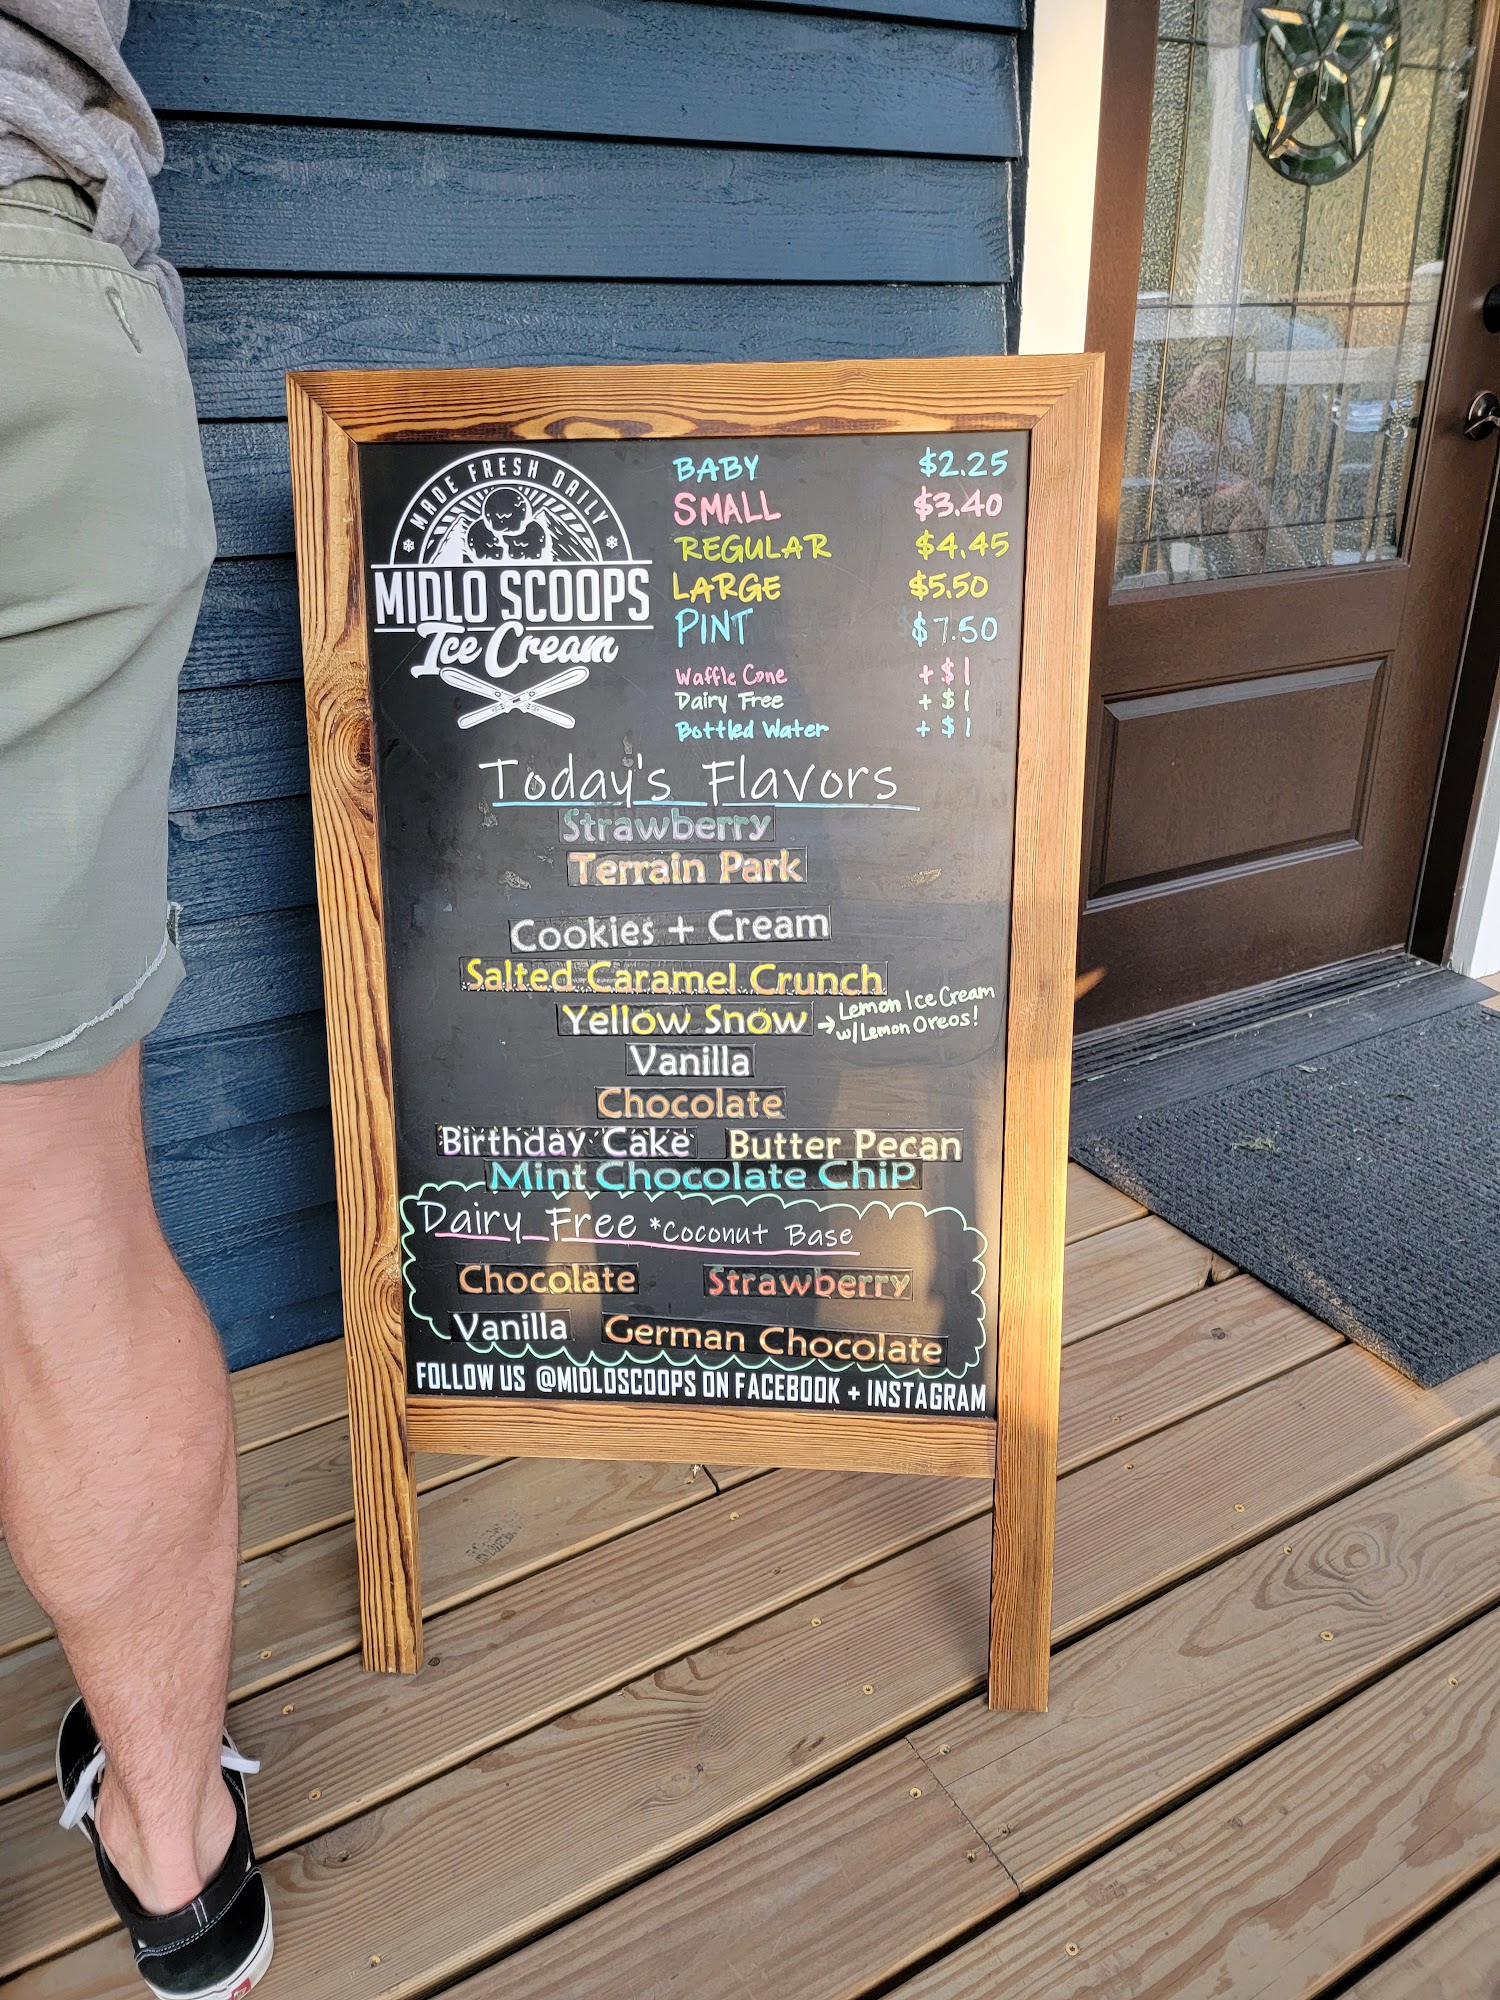 MADE FRESH DAILY
MIDLO SCOOPS
Ice Cream
BABY $2.25
SMALL $3.40
REGULAR $4.45
LARGE $5.50
PINT $7.50
Waffle Cone + $1
Dairy Free + $1
Bottled Water + $1
Today's Flavors
Strawberry
Terrain Park
Cookies + Cream
Salted Caramel Crunch
Yellow Snow → Lemon Ice Cream
w/ Lemon Oreos!
Vanilla
Chocolate
Birthday Cake Butter Pecan
Mint Chocolate Chip
Dairy Free *Coconut Base
Chocolate Strawberry
Vanilla German Chocolate
FOLLOW US @MIDLOSCOOPS ON FACEBOOK + INSTAGRAM